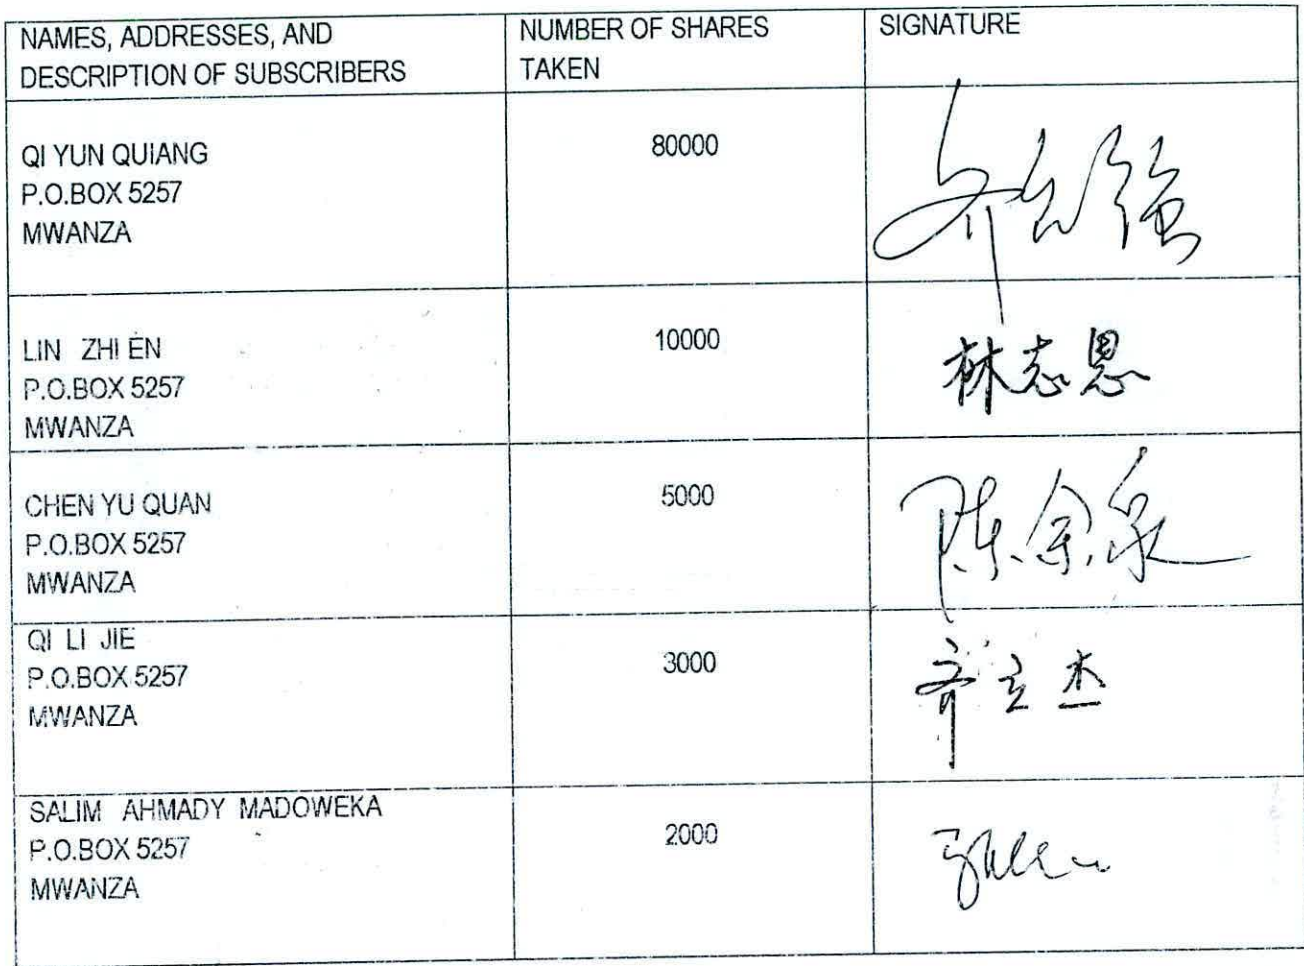 NAMES, ADDRESSES, AND
DESCRIPTION OF SUBSCRIBERS
NUMBER OF SHARES
TAKEN
SIGNATURE
QI YUN QUIANG
P.O.BOX 5257
MWANZA
80000
LIN ZHI EN
P.O.BOX 5257
MWANZA
10000
林志恩
CHEN YU QUAN
P.O.BOX 5257
MWANZA
5000
陈余泉
QI LI JIE
P.O.BOX 5257
MWANZA
3000
齐立杰
SALIM AHMADY MADOWEKA
P.O.BOX 5257
MWANZA
2000